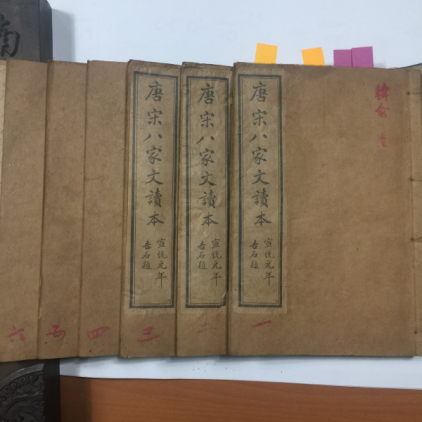 韓愈
唐宋八家文讀本
宣統元年
石題
一
唐宋八家文讀本
宣統元年
石題
唐宋八家文讀本
宣統元年
石題
三
四
五
六